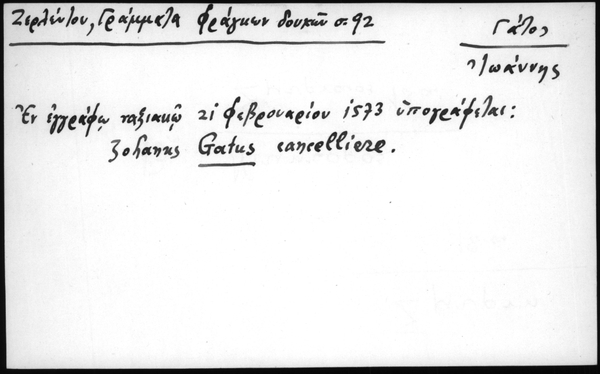 Ζερλέντου, Γράμματα Φράγκων δουκῶν σ. 92
Γάτος
Ἰωάννης
Ἐν ἐγγράφῳ ναξιακῷ 21 Φεβρουαρίου 1573 ὑπογράφεται:
Johanns Gatus cancelliere.